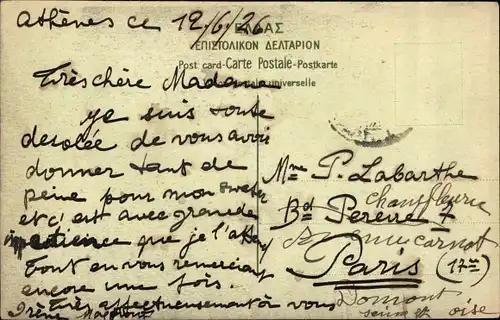 Athènes ce 12/6/26
ΕΛΛΑΣ
ΕΠΙΣΤΟΛΙΚΟΝ ΔΕΛΤΑΡΙΟΝ
Post card-Carte Postale-Postkarte
universelle
Très chère Madame
je suis toute
desolée de vous avoir
donner tant de
peine pour mon sweater
et c'est avec grande
que je l'attend
Tout en vous remerciant
encore une fois.
Très affectueusement à vous
Irène
Mme P. Labarthe
Bd Pereire 7
Paris (17me)
Domont
seine et oise